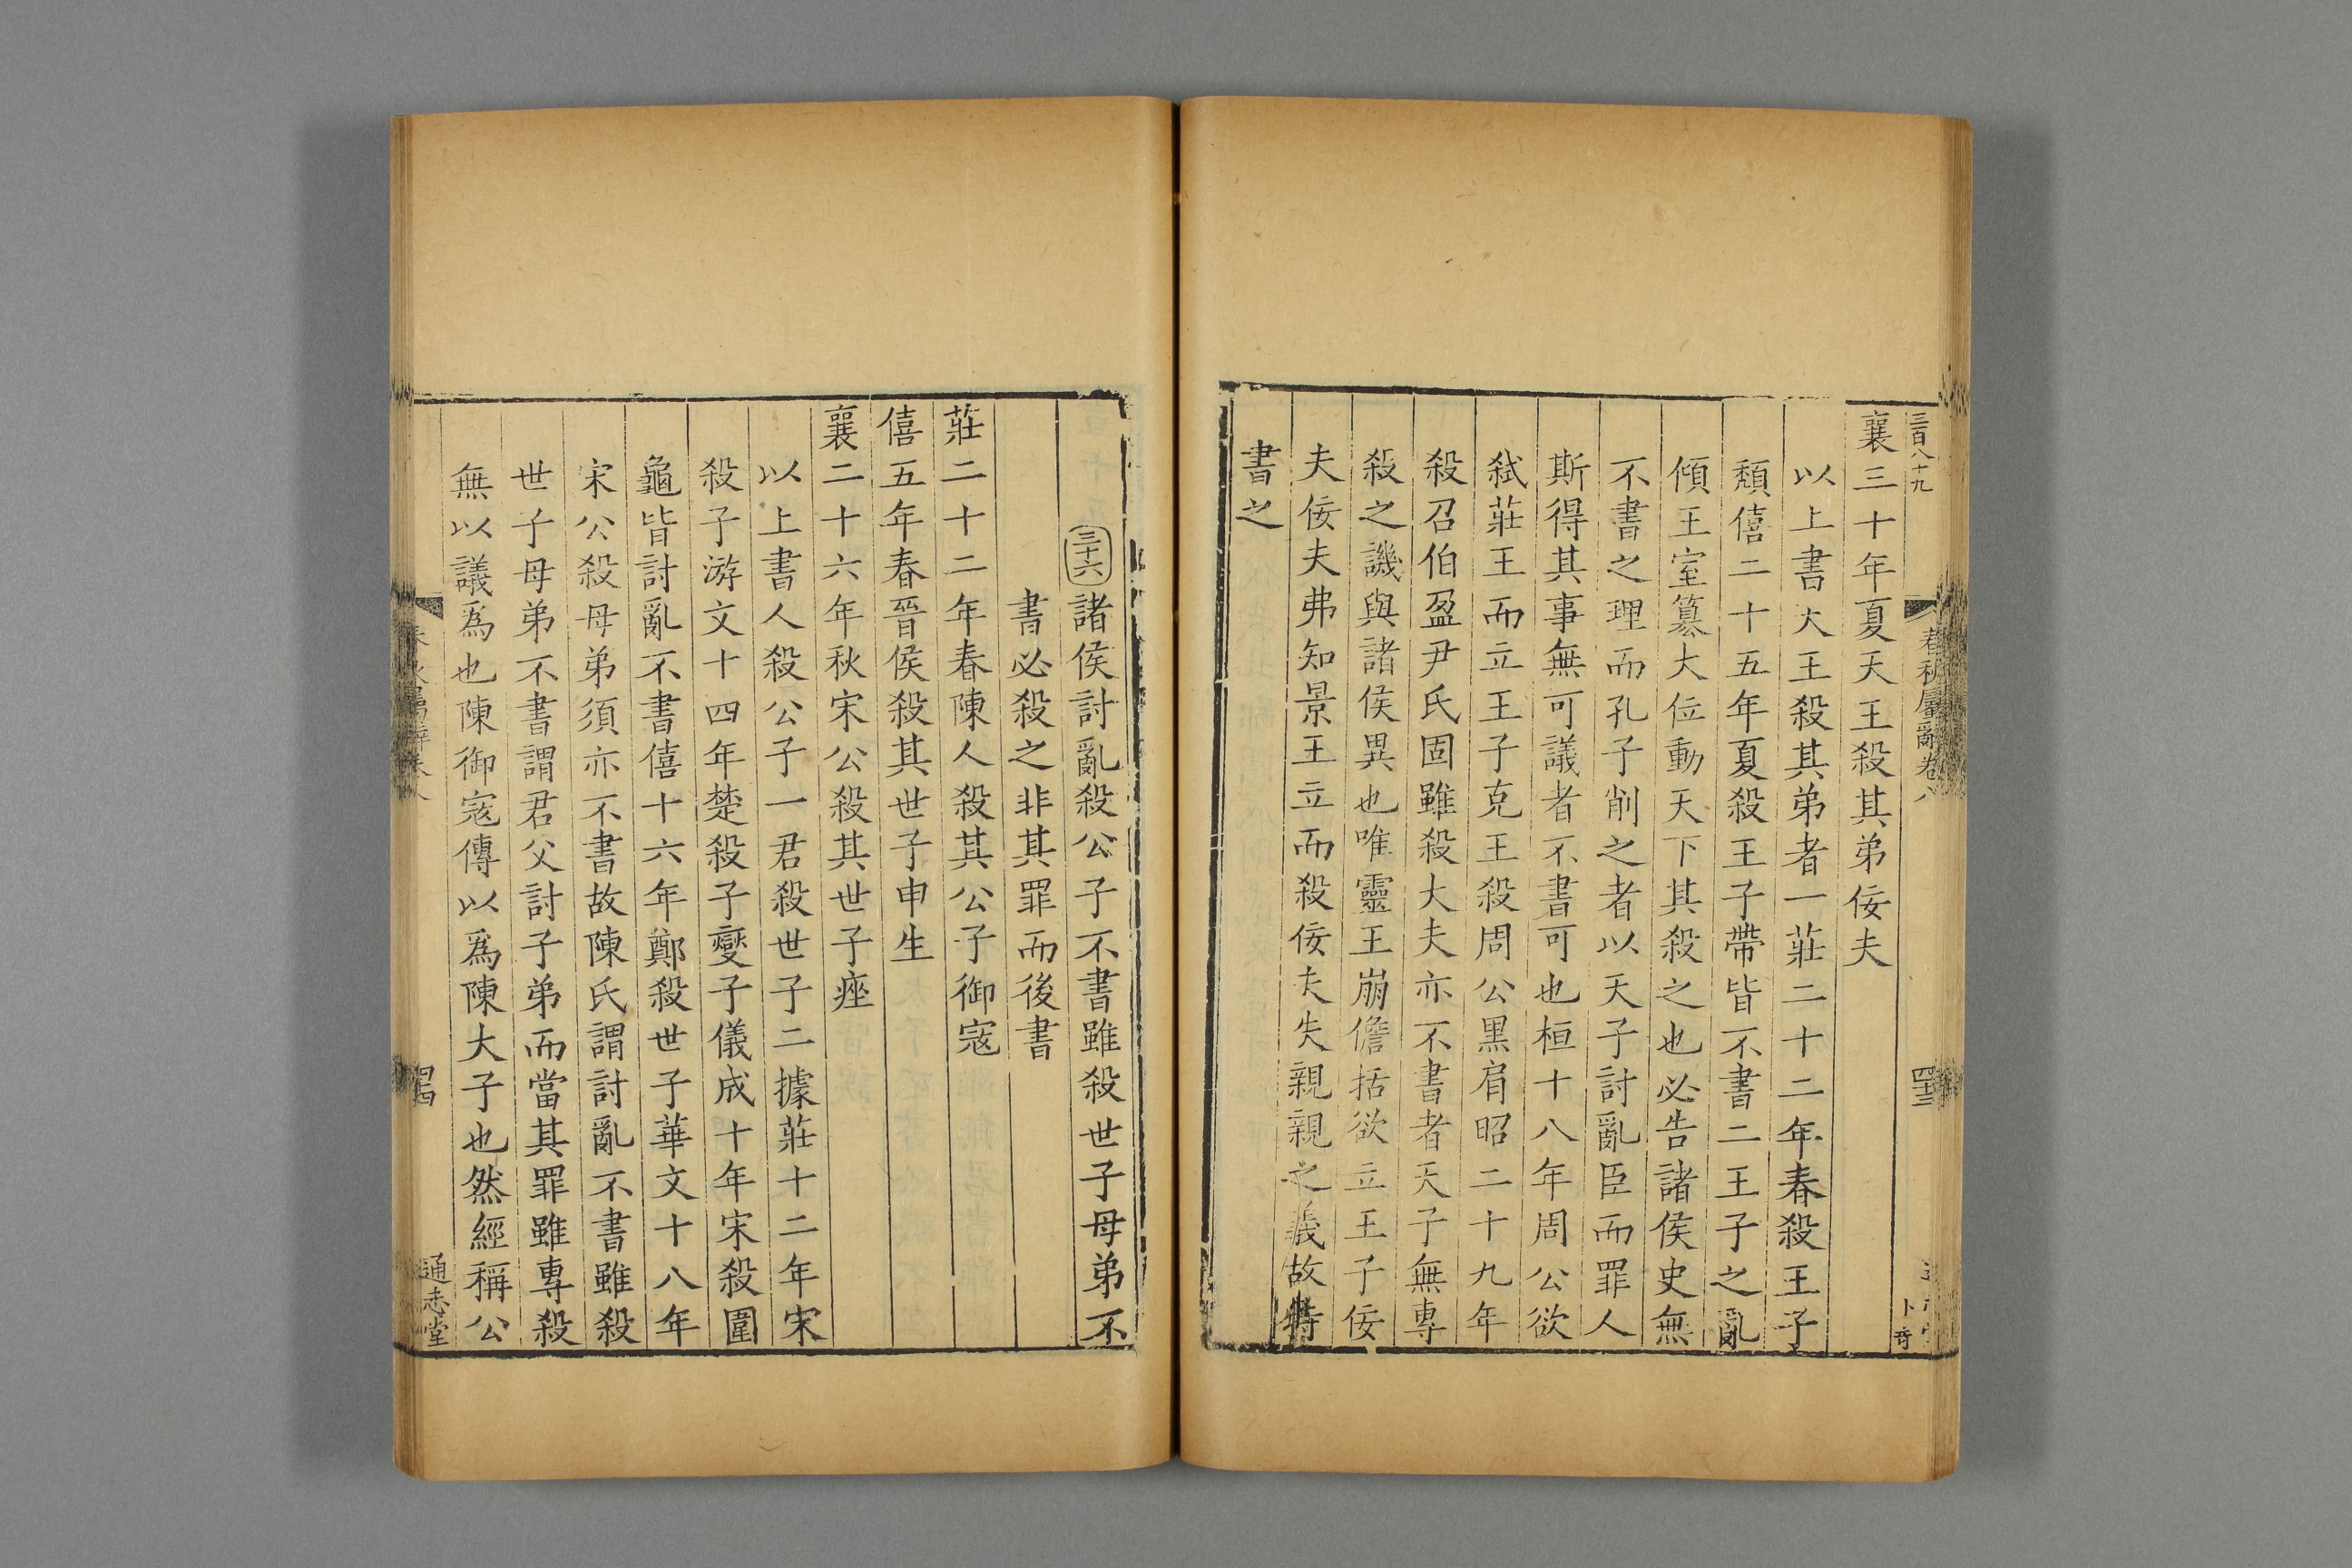 三百八十九
春秋屬辭卷八
襄三十年夏天王殺其弟佞夫
以上書大王殺其弟者一莊二十二年春殺王子
頹僖二十五年夏殺王子帶皆不書二王子之亂
傾王室簒大位動天下其殺之也必告諸侯史無
不書之理而孔子削之者以天子討亂臣而罪人
斯得其事無可議者不書可也桓十八年周公欲
弑莊王而立王子克王殺周公黑肩昭二十九年
殺召伯盈尹氏固雖殺大夫亦不書者天子無專
殺之譏與諸侯異也唯靈王崩儋括欲立王子佞
夫佞夫弗知景王立而殺佞夫失親親之義故特
書之
三十六諸侯討亂殺公子不書雖殺世子母弟不
書必殺之非其罪而後書
莊二十二年春陳人殺其公子御寇
僖五年春晉侯殺其世子申生
襄二十六年秋宋公殺其世子痤
以上書人殺公子一君殺世子二據莊十二年宋
殺子游文十四年楚殺子燮子儀成十年宋殺圍
龜皆討亂不書僖十六年鄭殺世子華文十八年
宋公殺母弟須亦不書故陳氏謂討亂不書雖殺
世子母弟不書謂君父討子弟而當其罪雖專殺
無以議爲也陳御寇傳以爲陳大子也然經稱公
通志堂